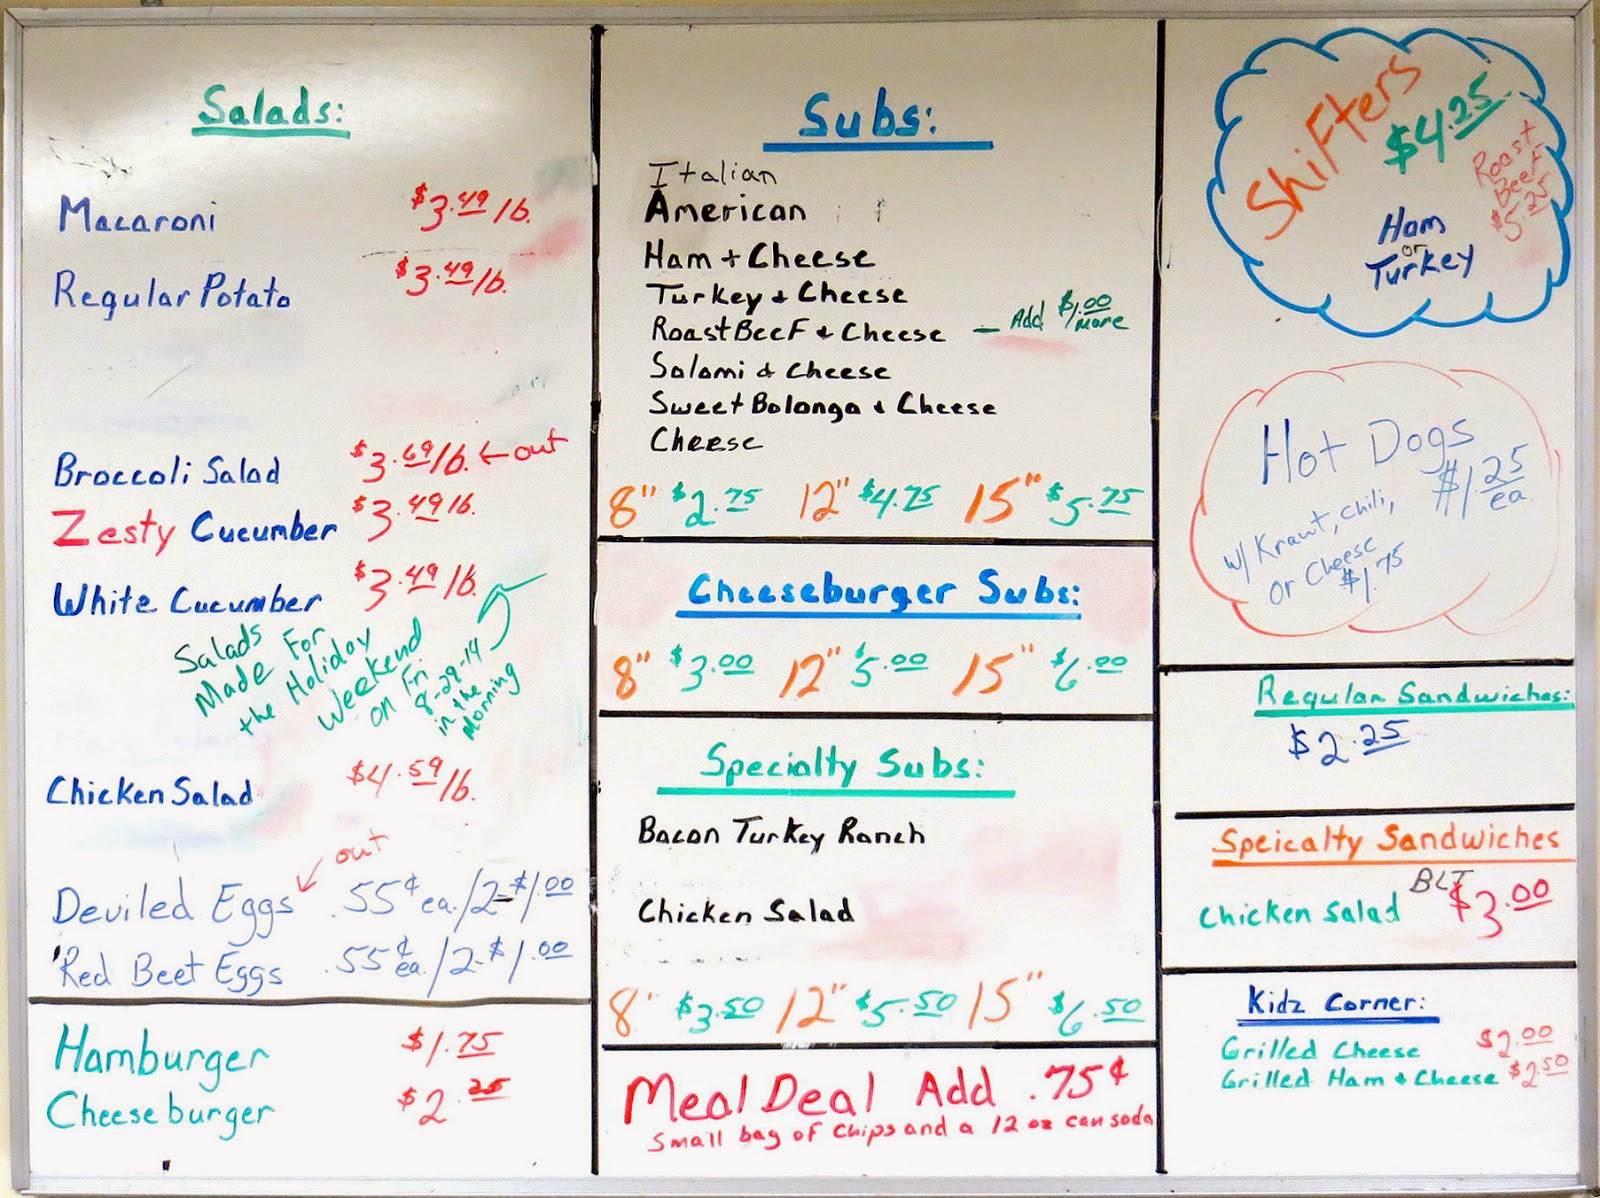 Salads:
Macaroni $3.49/lb.
Regular Potato $3.49/lb.
Broccoli Salad $3.69/lb. ← out
Zesty Cucumber $3.49 lb.
White Cucumber $3.49/lb.
Salads
Made For
the Holiday
Weekend
on Fri
8-29-14
in the
Morning
Chicken Salad $4.59/lb.
out
Deviled Eggs .55¢ ea./2-$1.00
Red Beet Eggs .55¢ ea./2-$1.00
Hamburger $1.75
Cheeseburger $2.25
Subs:
Italian
American
Ham + Cheese
Turkey & Cheese
Roast BeeF & Cheese — Add $1.00 More
Salami & Cheese
Sweet Bolonga & Cheese
Cheese
8" $2.75 12" $4.75 15" $5.75
Cheeseburger Subs:
8" $3.00 12" $5.00 15" $6.00
Specialty Subs:
Bacon Turkey Ranch
Chicken Salad
8" $3.50 12" $5.50 15" $6.50
Meal Deal Add .75¢
Small bag of chips and a 12 oz can soda
Shifters
$4.25
Ham
or
Turkey
Roast
Beef
$5.25
Hot Dogs
$1.25
ea.
w/ Kraut, chili,
or Cheese
$1.75
Regular Sandwiches:
$2.25
Speicalty Sandwiches
BLT
Chicken Salad $3.00
Kidz Corner:
Grilled Cheese $2.00
Grilled Ham & Cheese $2.50